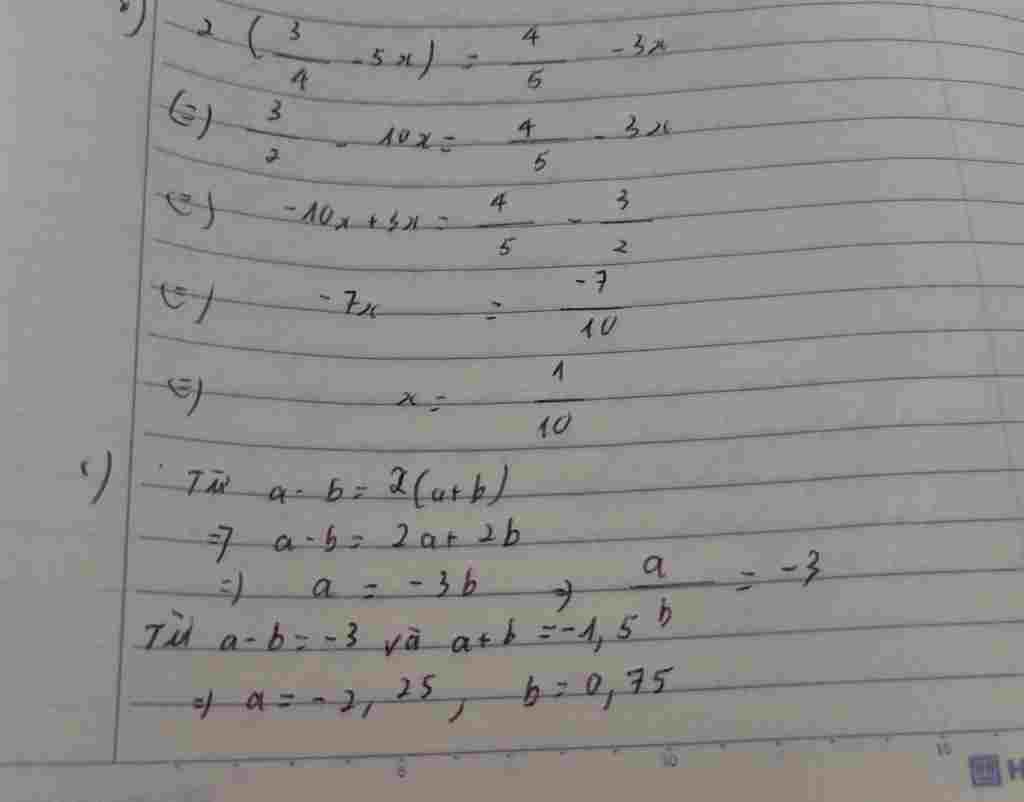 2 (3/4 - 5x) = 4/5 - 3x
(=) 3/2 - 10x = 4/5 - 3x
(=) -10x + 3x = 4/5 - 3/2
(=) -7x = -7/10
(=) x = 1/10
c) Từ a - b = 2(a+b)
=> a - b = 2a + 2b
=> a = -3b => a/b = -3
Từ a - b = -3 và a + b = -1,5
=> a = -2,25, b = 0,75
6 10 16
H